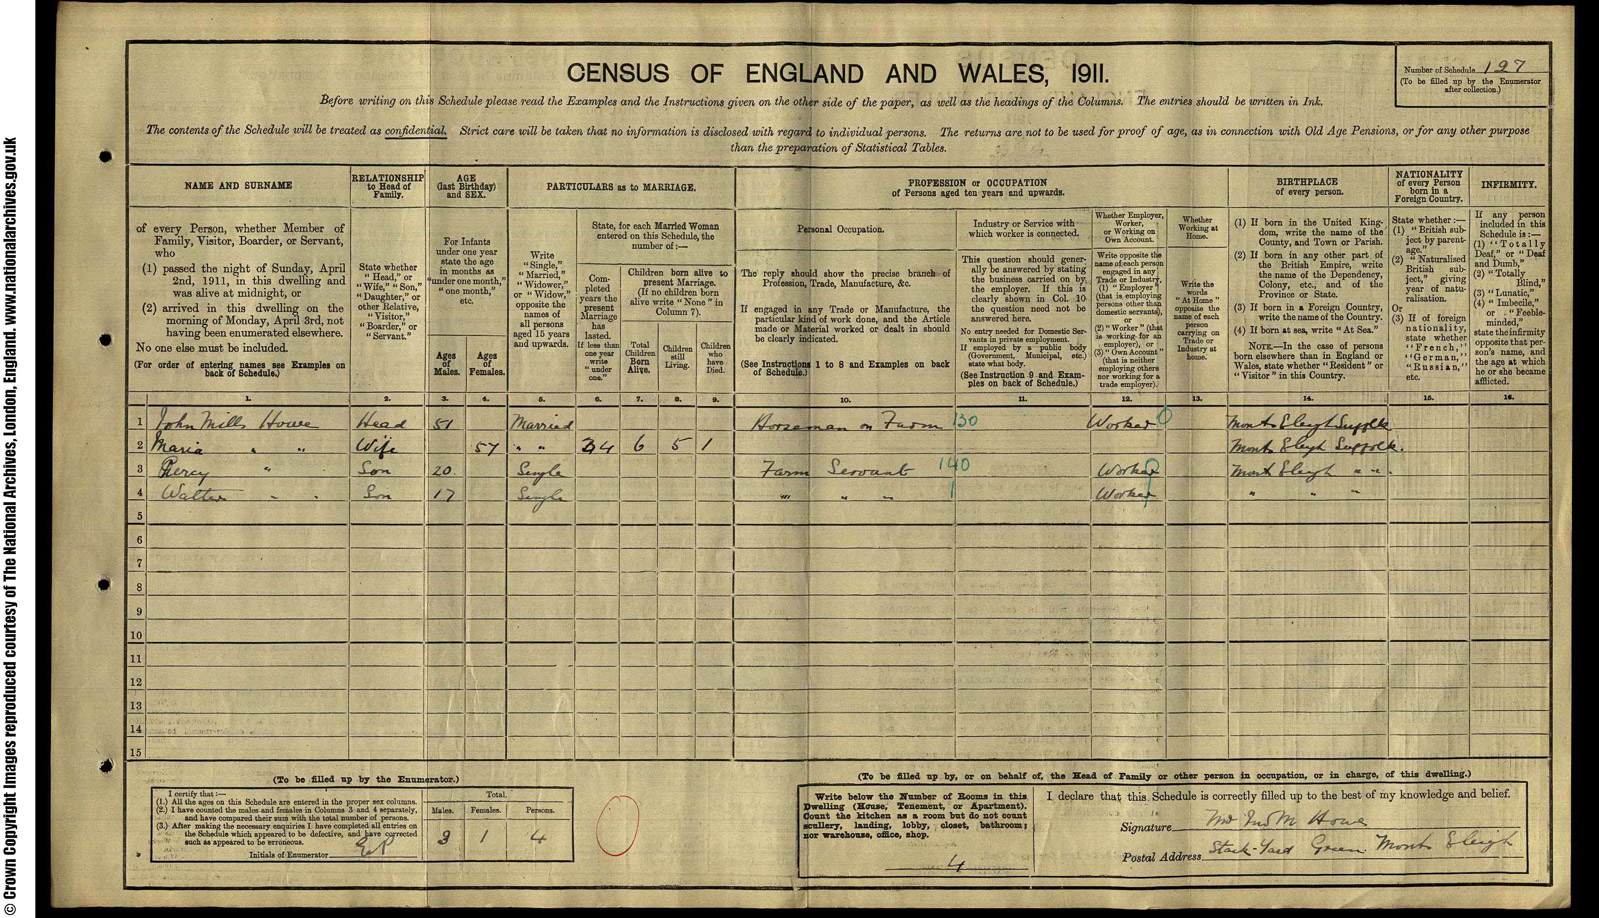 © Crown Copyright Images reproduced courtesy of The National Archives, London, England. www.nationalarchives.gov.uk
CENSUS OF ENGLAND AND WALES, 1911.
Number of Schedule 127
(To be filled up by the Enumerator
after collection.)
Before writing on this Schedule please read the Examples and the Instructions given on the other side of the paper, as well as the headings of the Columns. The entries should be written in Ink.
The contents of the Schedule will be treated as confidential. Strict care will be taken that no information is disclosed with regard to individual persons. The returns are not to be used for proof of age, as in connection with Old Age Pensions, or for any other purpose
than the preparation of Statistical Tables.
NAME AND SURNAME
of every Person, whether Member of
Family, Visitor, Boarder, or Servant,
who
(1) passed the night of Sunday, April
2nd, 1911, in this dwelling and
was alive at midnight, or
(2) arrived in this dwelling on the
morning of Monday, April 3rd, not
having been enumerated elsewhere.
No one else must be included.
(For order of entering names see Examples on
back of Schedule.)
RELATIONSHIP
to Head of
Family.
State whether
"Head," or
"Wife," "Son,"
"Daughter," or
other Relative,
"Visitor,"
"Boarder," or
"Servant."
AGE
(last Birthday)
and SEX.
For Infants
under one year
state the age
in months as
"under one month,"
"one month,"
etc.
Ages
of
Males.
Ages
of
Females.
PARTICULARS as to MARRIAGE.
Write
"Single,"
"Married,"
"Widower,"
or "Widow,"
opposite the
names of
all persons
aged 15 years
and upwards.
State, for each Married Woman
entered on this Schedule, the
number of:—
Com-
pleted
years the
present
Marriage
has
lasted.
If less than
one year
write
"under
one."
Children born alive to
present Marriage.
(If no children born
alive write "None" in
Column 7).
Total
Children
Born
Alive.
Children
still
Living.
Children
who
have
Died.
PROFESSION or OCCUPATION
of Persons aged ten years and upwards.
Personal Occupation.
The reply should show the precise branch of
Profession, Trade, Manufacture, &c.
If engaged in any Trade or Manufacture, the
particular kind of work done, and the Article
made or Material worked or dealt in should
be clearly indicated.
(See Instructions 1 to 8 and Examples on back
of Schedule.)
Industry or Service with
which worker is connected.
This question should gener-
ally be answered by stating
the business carried on by
the employer. If this is
clearly shown in Col. 10
the question need not be
answered here.
No entry needed for Domestic Ser-
vants in private employment.
If employed by a public body
(Government, Municipal, etc.)
state what body.
(See Instruction 9 and Exam-
ples on back of Schedule.)
Whether Employer,
Worker,
or Working on
Own Account.
Write opposite the
name of each person
engaged in any
Trade or Industry,
(1) "Employer"
(that is employing
persons other than
domestic servants),
or
(2) "Worker" (that
is working for an
employer), or
(3) "Own Account"
(that is neither
employing others
nor working for a
trade employer).
Whether
Working at
Home.
Write the
words
"At Home"
opposite the
name of each
person
carrying on
Trade or
Industry at
home.
BIRTHPLACE
of every person.
(1) If born in the United King-
dom, write the name of the
County, and Town or Parish.
(2) If born in any other part of
the British Empire, write
the name of the Dependency,
Colony, etc., and of the
Province or State.
(3) If born in a Foreign Country,
write the name of the Country.
(4) If born at sea, write "At Sea."
NOTE.—In the case of persons
born elsewhere than in England or
Wales, state whether "Resident" or
"Visitor" in this Country.
NATIONALITY
of every Person
born in a
Foreign Country.
State whether :—
(1) "British sub-
ject by parent-
age."
(2) "Naturalised
British sub-
ject," giving
year of natu-
ralisation.
Or
(3) If of foreign
nationality,
state whether
"French,"
"German,"
"Russian,"
etc.
INFIRMITY.
If any person
included in this
Schedule is:—
(1) "Totally
Deaf," or "Deaf
and Dumb,"
(2) "Totally
Blind,"
(3) "Lunatic,"
(4) "Imbecile,"
or "Feeble-
minded,"
state the infirmity
opposite that per-
son's name, and
the age at which
he or she became
afflicted.
1. 2. 3. 4. 5. 6. 7. 8. 9. 10. 11. 12. 13. 14. 15. 16.
1 John Mills Howe Head 51 Married Horseman on Farm 130 Worker 0 Monks Eleigh Suffolk
2 Maria " " Wife 57 " " 34 6 5 1 Monks Eleigh Suffolk.
3 Percy " Son 20. Single Farm Servant 140 Worker Monks Eleigh " "
4 Walter " " Son 17 Single " " " Worker " " "
5
6
7
8
9
10
11
12
13
14
15
(To be filled up by the Enumerator.)
I certify that:—
(1.) All the ages on this Schedule are entered in the proper sex columns.
(2.) I have counted the males and females in Columns 3 and 4 separately,
and have compared their sum with the total number of persons.
(3.) After making the necessary enquiries I have completed all entries on
the Schedule which appeared to be defective, and have corrected
such as appeared to be erroneous.
Initials of Enumerator
Total.
Males. Females. Persons.
3 1 4
(To be filled up by, or on behalf of, the Head of Family or other person in occupation, or in charge, of this dwelling.)
Write below the Number of Rooms in this
Dwelling (House, Tenement, or Apartment).
Count the kitchen as a room but do not count
scullery, landing, lobby, closet, bathroom;
nor warehouse, office, shop.
4
I declare that this Schedule is correctly filled up to the best of my knowledge and belief.
Signature Howe
Postal Address Stack-Yard Green Monks Eleigh